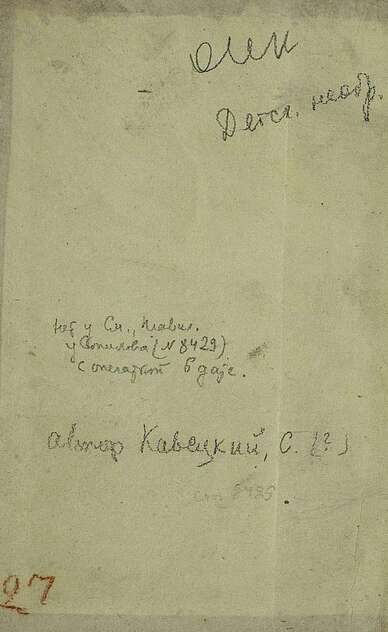 Детск. необр.
Нет у См., Плавил.
у Сопикова (N 8429)
с опечаткой в дате.
автор Кавецкий, С. (?)
27